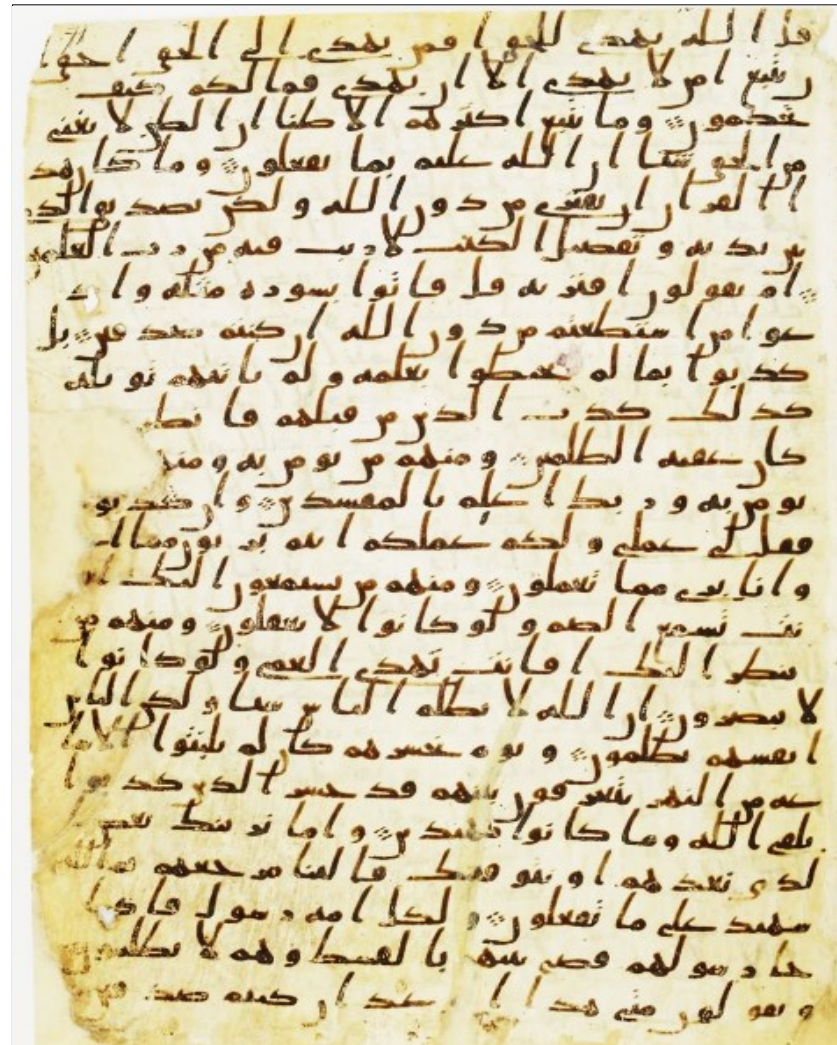 قل الله يهدى للحق افمن يهدى الى الحق احق ا
ن يتبع امن لا يهدى الا ان يهدى فما لكم كيف
تحكمون وما يتبع اكثرهم الا ظنا ان الظن لا يغنى
من الحق شيا ان الله عليم بما يفعلون وما كان هذ
ا القران ان يفترى من دون الله ولكن تصديق الذى
بين يديه وتفصيل الكتب لا ريب فيه من رب العلمين
ام يقولون افتريه قل فاتوا بسورة مثله واد
عوا من استطعتم من دون الله ان كنتم صدقين بل
كذبوا بما لم يحيطوا بعلمه ولم ياتهم تويله
كذلك كذب الذين من قبلهم فانظر
كان عقبه الظلمين ومنهم من يومن به
يومن به وربك اعلم بالمفسدين وان كذبو
فقل لى عملى ولكم عملكم انتم بريون مما
وانا برى مما تعملون ومنهم من يستمعون اليك
نت تسمع الصم ولو كانوا لا يعقلون ومنهم من
ينظر اليك افانت تهدى العمى ولو كانوا
لا يبصرون ان الله لا يظلم الناس شيا ولكن الناس
انفسهم يظلمون ويوم نحشرهم كان لم يلبثوا الا سا
عه من النهر يتعرفون بينهم قد خسر الذين كذبوا
بلقى الله وما كانوا مهتدين واما نرينك بعض
لذى نعدهم او نتوفينك فالينا مرجعهم ثم الله
شهيد على ما يفعلون ولكل امه رسول فاذا
جا رسولهم قضى بينهم بالقسط وهم لا يظلمون
ويقولون متى هذا ان كنتم صدقين